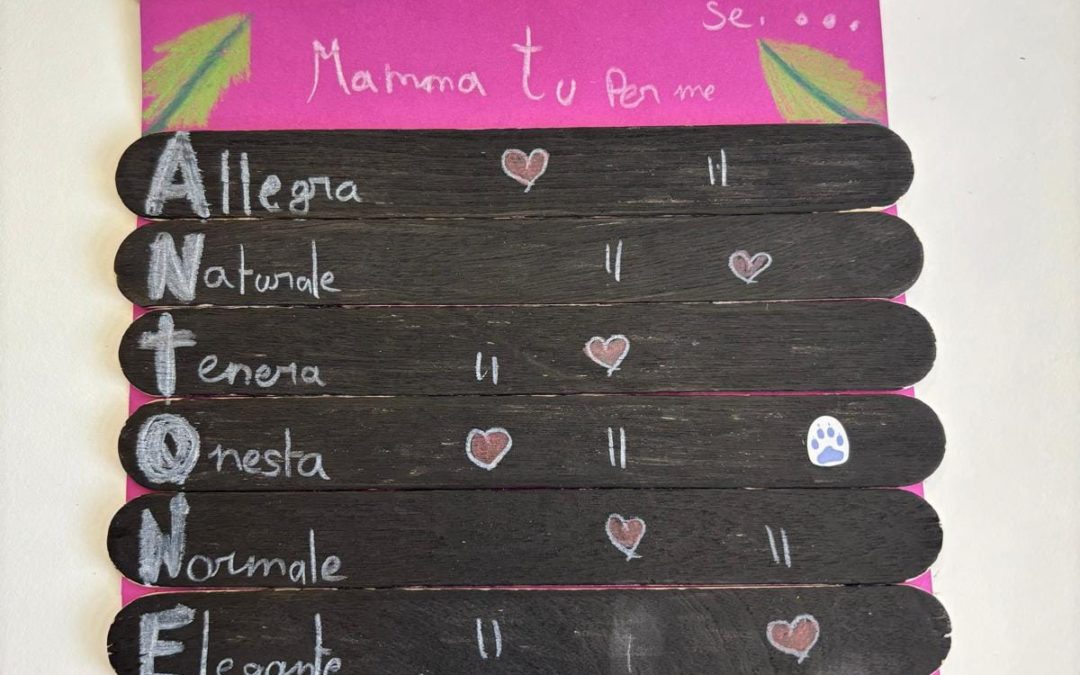 Se. ...
Mamma tu Per me
Allegra
Naturale
tenera
Onesta
Normale
Elegante